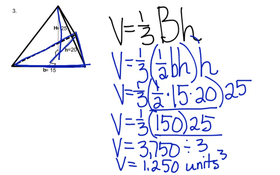 3.
V = 1/3 Bh
H= 25
h=20
b= 15
V = 1/3 (1/2 bh) h
V = 1/3 (1/2 · 15 · 20) 25
V = 1/3 (150) 25
V = 3,750 ÷ 3
V = 1,250 units³